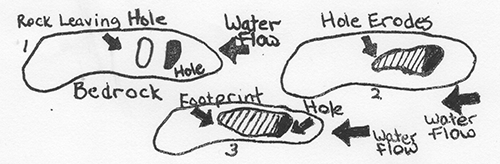 Rock Leaving Hole
1
Hole
Bedrock
Water
Flow
Hole Erodes
2
Water
Flow
Footprint
Hole
3
Water
Flow